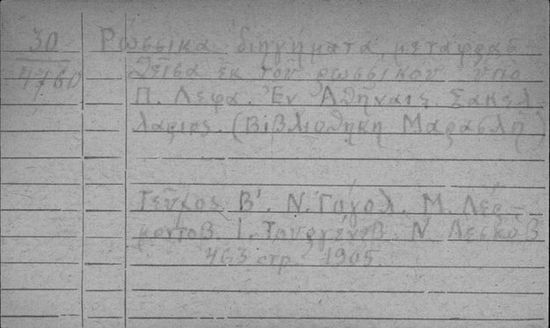 30
4760
Ρωσσικα διηγήματα μεταφρασ
θεῖσα ἐκ τοῦ ρωσσικοῦ ὑπὸ
Π. Λεφα. Ἐν Ἀθήναις. Σακελ
λαριος. (Βιβλιοθήκη Μαρασλῆ)
Τεῦχος Β'. Ν. Γόγολ. Μ. Λέρ-
μοντοβ Ι. Τουργένεβ. Ν. Λεσκὸβ
463 стр. 1905